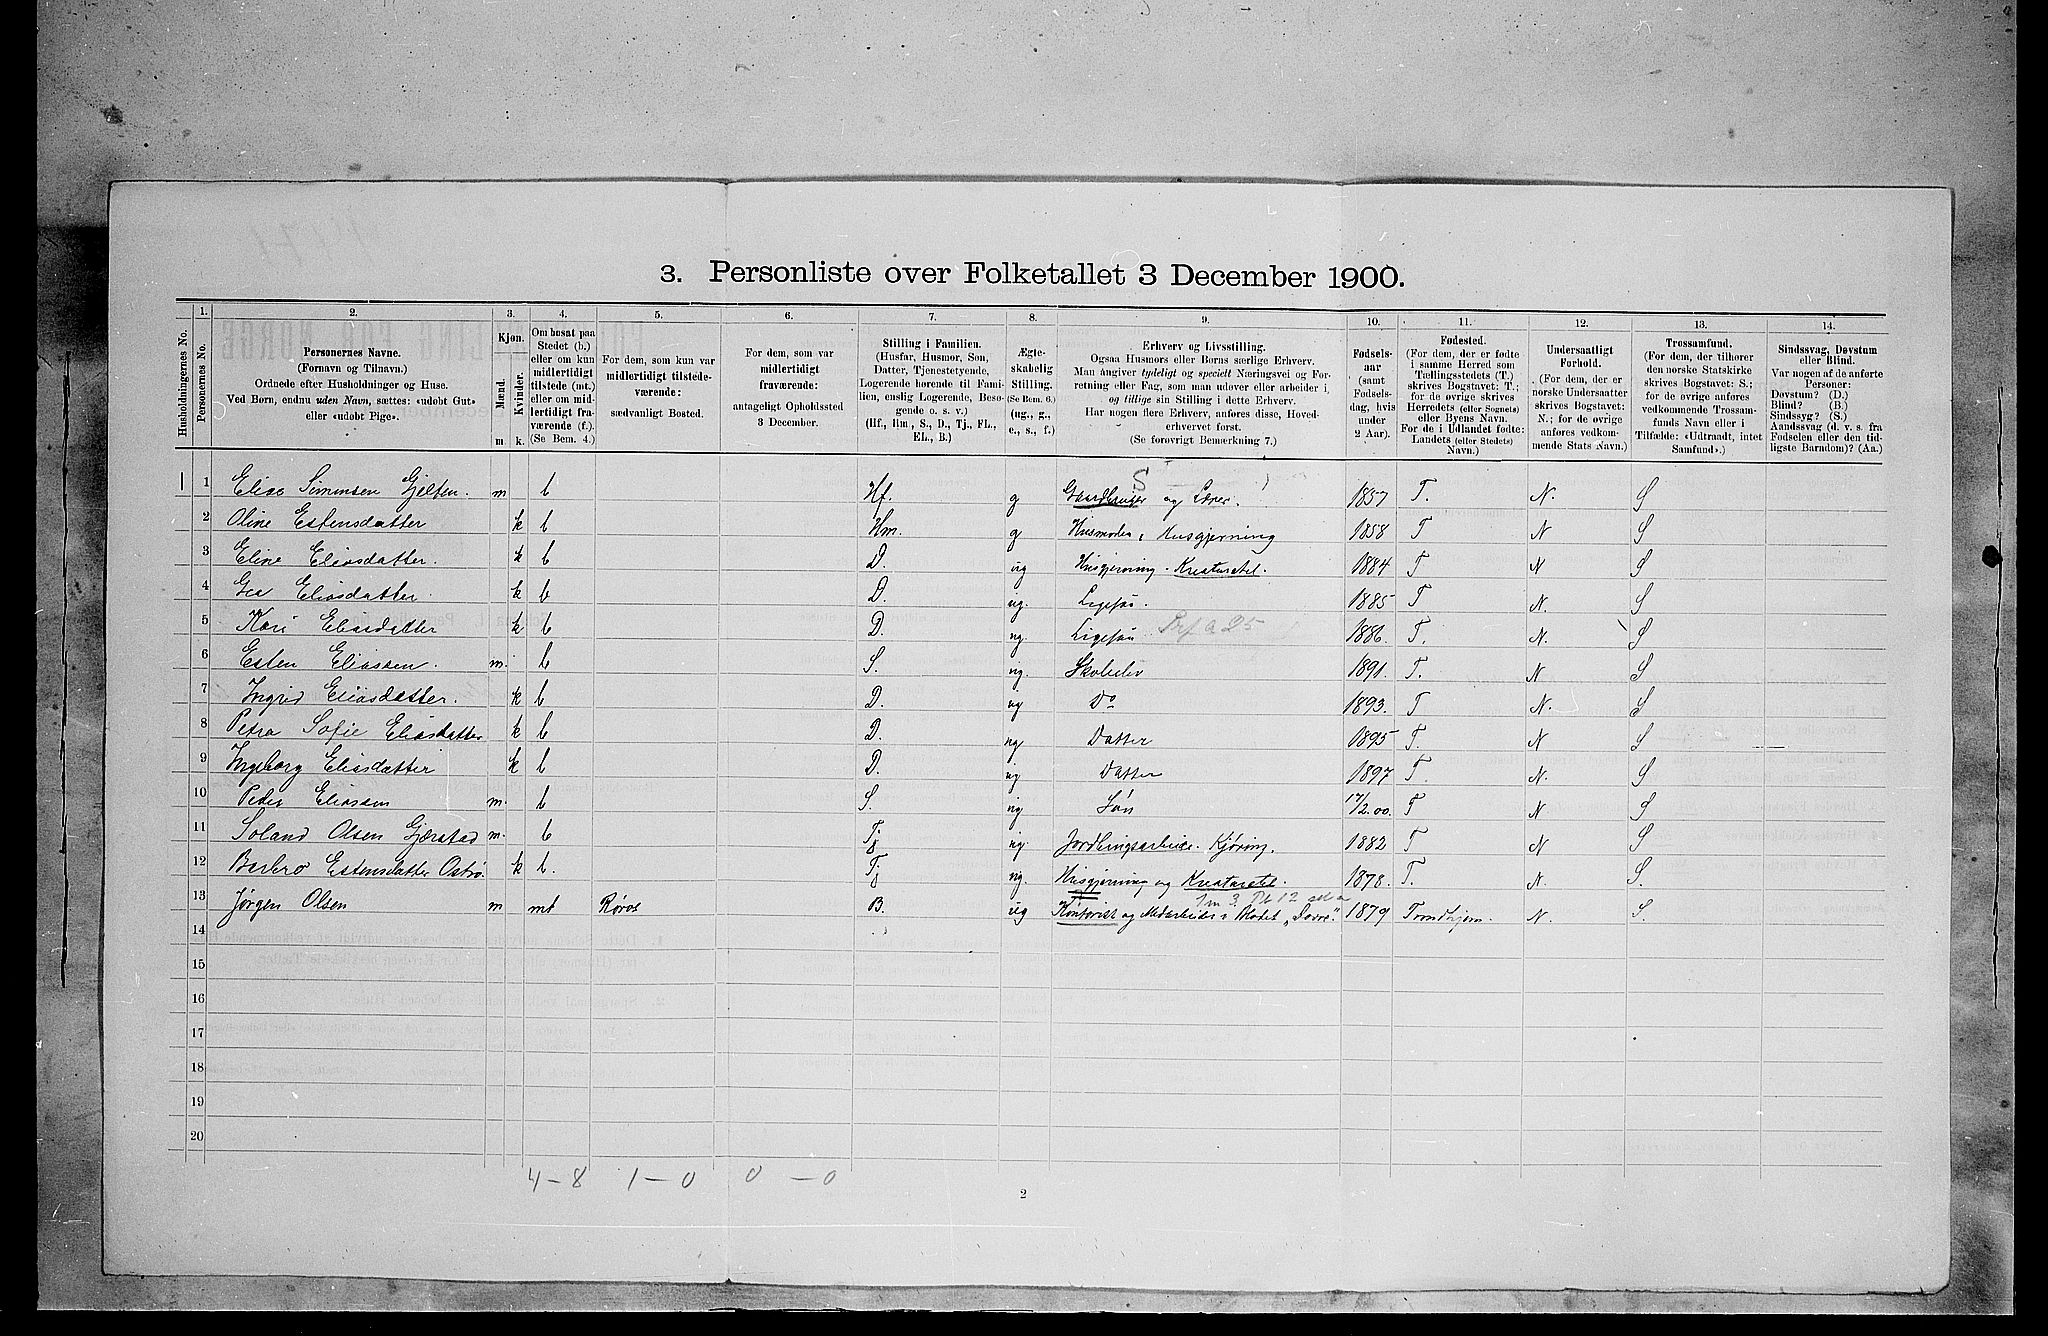 3. Personliste over Folketallet 3 December 1900.
Husholdningernes No.
1. Personernes No.
2. Personernes Navne.
(Fornavn og Tilnavn.)
Ordnede efter Husholdninger og Huse.
Ved Børn, endnu uden Navn, sættes: «udøbt Gut»
eller «udøbt Pige».
3. Kjøn.
Mænd. Kvinder.
m. k.
4. Om bosat paa
Stedet (b.)
eller om kun
midlertidigt
tilstede (mt.)
eller om mid-
lertidigt fra-
værende (f.).
(Se Bem. 4.)
5. For dem, som kun var
midlertidigt tilstede-
værende:
sædvanligt Bosted.
6. For dem, som var
midlertidigt
fraværende:
antageligt Opholdssted
3 December.
7. Stilling i Familien.
(Husfar, Husmor, Søn,
Datter, Tjenestetyende,
Logerende hørende til Fami-
lien, enslig Logerende, Besø-
gende o. s. v.)
(Hf., Hm., S., D., Tj., FL.,
EL., B.)
8. Ægte-
skabelig
Stilling.
(Se Bem. 6.)
(ug., g.,
e., s., f.)
9. Erhverv og Livsstilling.
Ogsaa Husmors eller Børns særlige Erhverv.
Man angiver tydeligt og specielt Næringsvei og For-
retning eller Fag, som man udøver eller arbeider i,
og tillige sin Stilling i dette Erhverv.
Har nogen flere Erhverv, anføres disse, Hoved-
erhvervet først.
(Se forøvrigt Bemærkning 7.)
10. Fødsels-
aar
(samt
Fødsels-
dag, hvis
under
2 Aar).
11. Fødested.
(For dem, der er fødte
i samme Herred som
Tællingsstedets (T.)
skrives Bogstavet: T.;
for de øvrige skrives
Herredets (eller Sognets)
eller Byens Navn.
For de i Udlandet fødte:
Landets (eller Stedets)
Navn.)
12. Undersaatligt
Forhold.
(For dem, der er
norske Undersaatter
skrives Bogstavet:
N.; for de øvrige
anføres vedkom-
mende Stats Navn.)
13. Trossamfund.
(For dem, der tilhører
den norske Statskirke
skrives Bogstavet: S.;
for de øvrige anføres
vedkommende Trossam-
funds Navn eller i
Tilfælde: «Udtraadt, intet
Samfund».)
14. Sindssvag, Døvstum
eller Blind.
Var nogen af de anførte
Personer:
Døvstum? (D.)
Blind? (B.)
Sindssyg? (S.)
Aandssvag (d. v. s. fra
Fødselen eller den tid-
ligste Barndom)? (Aa.)
S
1 Elias Simensen Gjelten. m b Hf. g Gaardbruger og Lærer. 1857 T. N. S
2 Oline Estensdatter k b Hm. g Husmoder, Husgjerning 1858 T N S
3 Eline Eliasdatter. k b D. ug Husgjerning. Kreaturstel. 1884 T N S
4 Eliasdatter. k b D. ug. Ligesaa. 1885 T N. S
5 Kari Eliasdatter k b D. ug. Ligesaa 1886. T. N. S
6 Esten Eliassen. m. b S. ug. Skoleelev 1891. T. N S
7 Ingrid Eliasdatter. k b D. ug Do 1893. T N. S
8 Petra Sofie Eliasdatter k b D. ug Datter 1895 T. N S
9 Ingeborg Eliasdatter k b D. ug Datter 1897 T. N. S
10 Peder Eliassen m. b S. ug Søn 17/2.00. T N S
11 Olsen Gjærstad m. b Tj ug. Jordbrugsarbeide. Kjøring. 1882 T N S
12 Barbro Estensdatter k b. Tj ug. Husgjerning og Kreaturstel. 1878. T. N. S.
13 Jørgen Olsen m mt Røros B. ug Kontorist og Medarbeider i Bladet „Dovre“. 1879 Trondhjem. N. S.
14
15
16
17
18
19
20
4 – 8 1 – 0 0 – 0
2